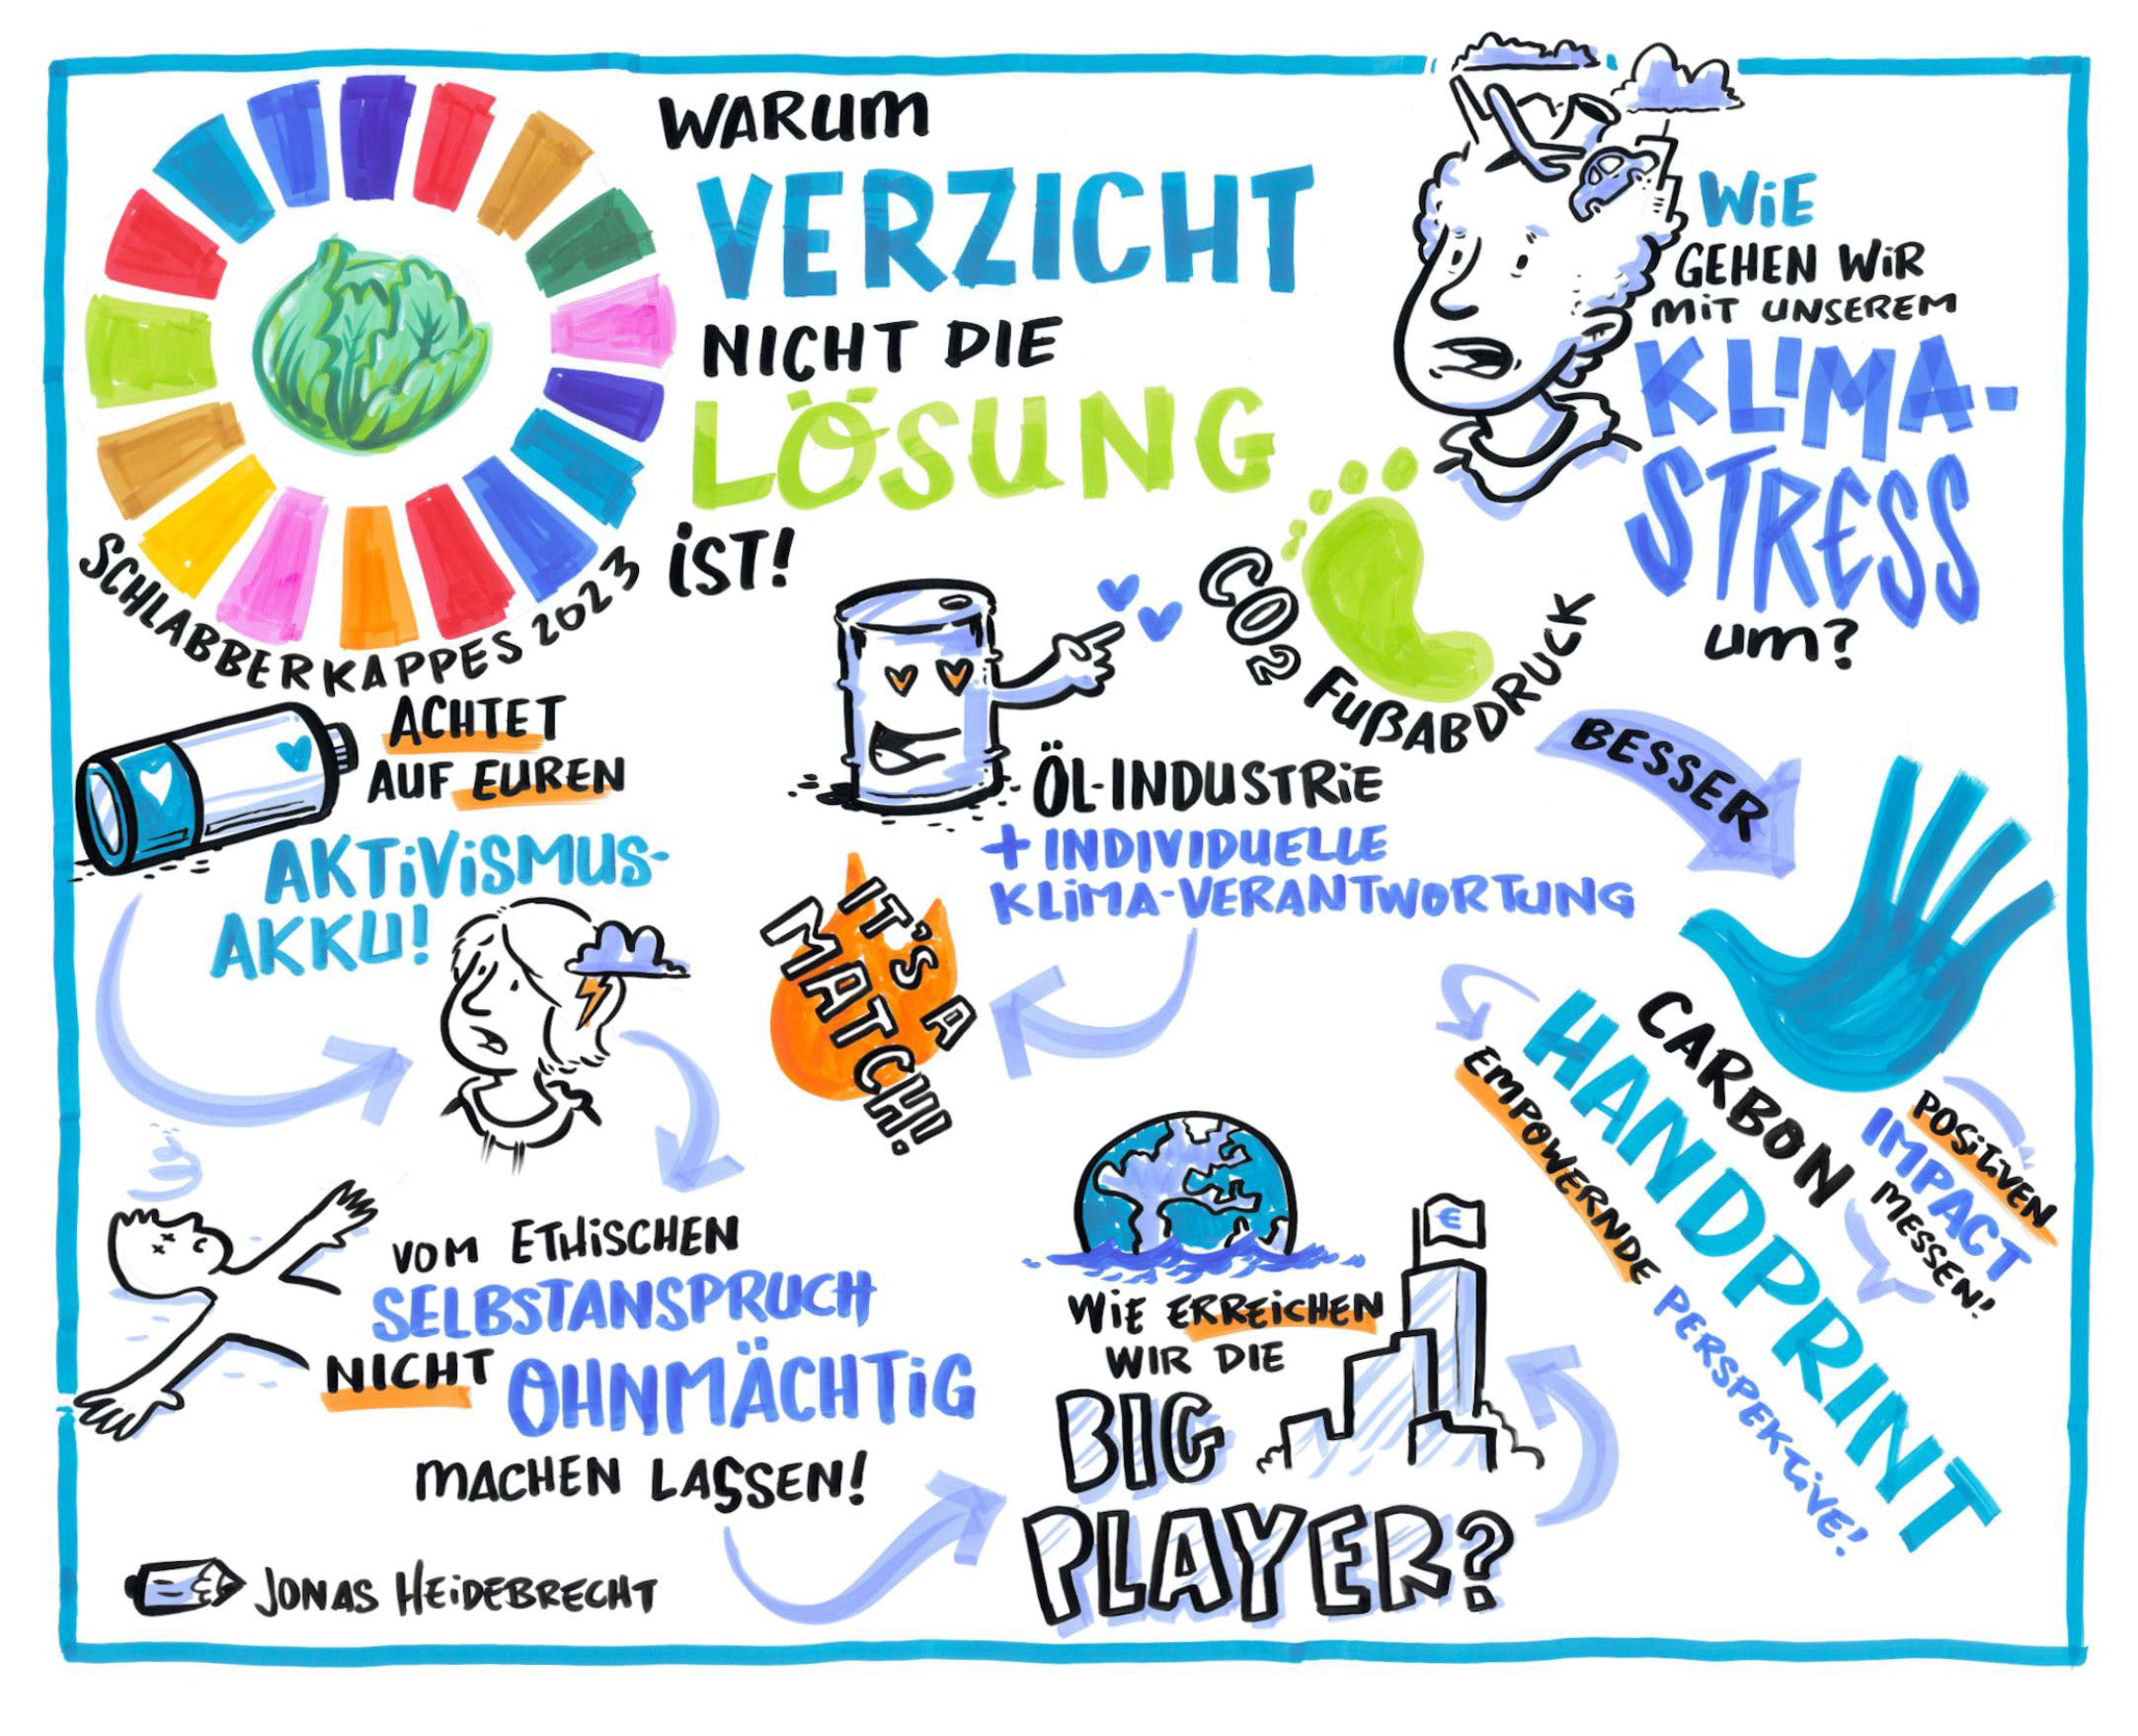 WARUM
VERZICHT
NICHT DIE
LÖSUNG
IST!
SCHLABBERKAPPES 2023
WIE
GEHEN WIR
MIT UNSEREM
KLIMA-
STRESS
UM?
ACHTET
AUF EUREN
AKTIVISMUS-
AKKU!
CO2 FUßABDRUCK
BESSER
ÖL-INDUSTRIE
+ INDIVIDUELLE
KLIMA-VERANTWORTUNG
IT'S A
MATCH!
CARBON
HANDPRINT
POSITIVEN
IMPACT
MESSEN!
EMPOWERNDE PERSPEKTIVE!
VOM ETHISCHEN
SELBSTANSPRUCH
NICHT OHNMÄCHTIG
MACHEN LASSEN!
€
WIE ERREICHEN
WIR DIE
BIG
PLAYER?
JONAS HEIDEBRECHT